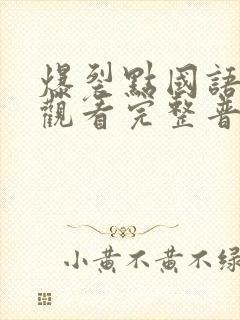 爆裂點國語
觀看完整普
小黃不黃不绿